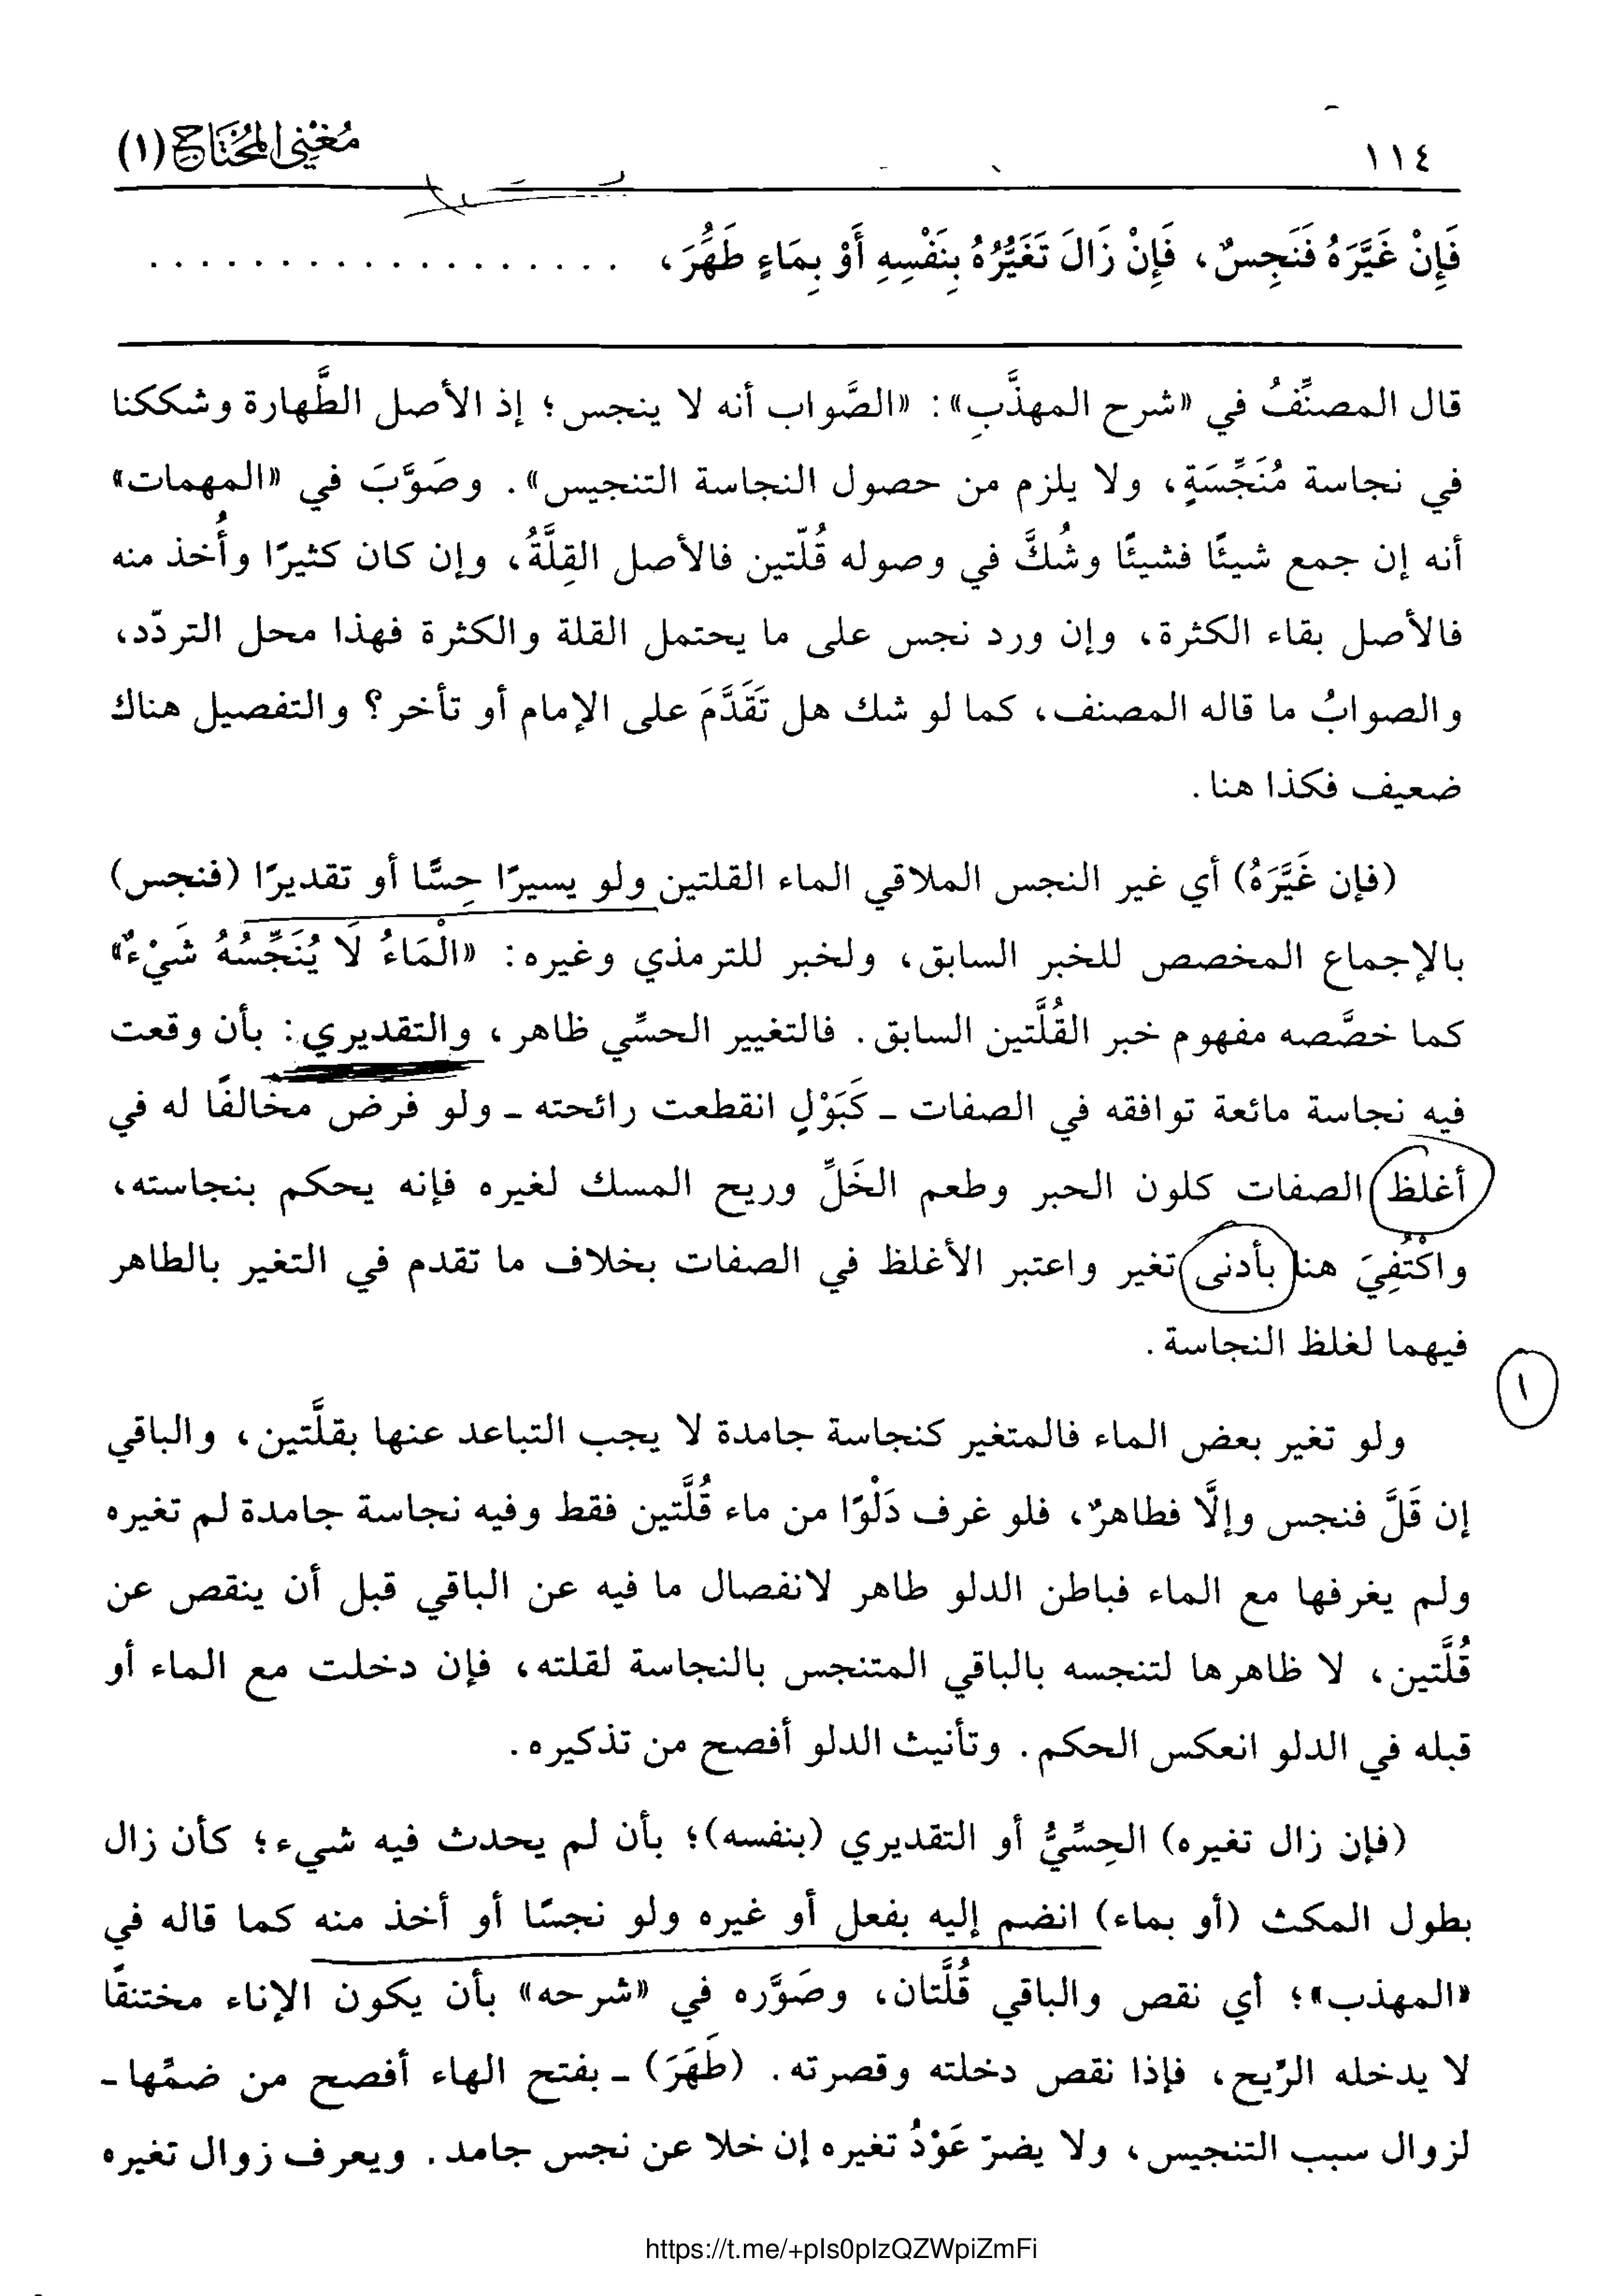 ١١٤
مُغْنِي المُحْتَاج (١)
فَإِنْ غَيَّرَهُ فَنَجِسٌ، فَإِنْ زَالَ تَغَيُّرُهُ بِنَفْسِهِ أَوْ بِمَاءٍ طَهُرَ، . . . . . . . . . . . . . . . . . . .
قال المصنِّفُ في «شرح المهذَّبِ»: «الصَّواب أنه لا ينجس؛ إذ الأصل الطَّهارة وشككنا
في نجاسة مُنَجِّسَةٍ، ولا يلزم من حصول النجاسة التنجيس». وصَوَّبَ في «المهمات»
أنه إن جمع شيئًا فشيئًا وشُكَّ في وصوله قُلّتين فالأصل القِلَّةُ، وإن كان كثيرًا وأُخذ منه
فالأصل بقاء الكثرة، وإن ورد نجس على ما يحتمل القلة والكثرة فهذا محل التردّد،
والصوابُ ما قاله المصنف، كما لو شك هل تَقَدَّمَ على الإمام أو تأخر؟ والتفصيل هناك
ضعيف فكذا هنا.
(فإن غَيَّرَهُ) أي غير النجس الملاقي الماء القلتين ولو يسيرًا حِسًّا أو تقديرًا (فنجس)
بالإجماع المخصص للخبر السابق، ولخبر للترمذي وغيره: «الْمَاءُ لَا يُنَجِّسُهُ شَيْءٌ»
كما خصَّصه مفهوم خبر القُلَّتين السابق. فالتغيير الحسِّي ظاهر، والتقديري: بأن وقعت
فيه نجاسة مائعة توافقه في الصفات ـ كَبَوْلٍ انقطعت رائحته ـ ولو فرض مخالفًا له في
أغلظ الصفات كلون الحبر وطعم الخَلِّ وريح المسك لغيره فإنه يحكم بنجاسته،
واكْتُفِيَ هنا بأدنى تغير واعتبر الأغلظ في الصفات بخلاف ما تقدم في التغير بالطاهر
فيهما لغلظ النجاسة.
١
ولو تغير بعض الماء فالمتغير كنجاسة جامدة لا يجب التباعد عنها بقلَّتين، والباقي
إن قَلَّ فنجس وإلَّا فطاهرٌ، فلو غرف دَلْوًا من ماء قُلَّتين فقط وفيه نجاسة جامدة لم تغيره
ولم يغرفها مع الماء فباطن الدلو طاهر لانفصال ما فيه عن الباقي قبل أن ينقص عن
قُلَّتين، لا ظاهرها لتنجسه بالباقي المتنجس بالنجاسة لقلته، فإن دخلت مع الماء أو
قبله في الدلو انعكس الحكم. وتأنيث الدلو أفصح من تذكيره.
(فإن زال تغيره) الحِسِّيُّ أو التقديري (بنفسه)؛ بأن لم يحدث فيه شيء؛ كأن زال
بطول المكث (أو بماء) انضم إليه بفعل أو غيره ولو نجسًا أو أخذ منه كما قاله في
«المهذب»؛ أي نقص والباقي قُلَّتان، وصَوَّره في «شرحه» بأن يكون الإناء مختنقًا
لا يدخله الرِّيح، فإذا نقص دخلته وقصرته. (طَهَرَ) ـ بفتح الهاء أفصح من ضمِّها ـ
لزوال سبب التنجيس، ولا يضرّ عَوْدُ تغيره إن خلا عن نجس جامد. ويعرف زوال تغيره
https://t.me/+pIs0pIzQZWpiZmFi